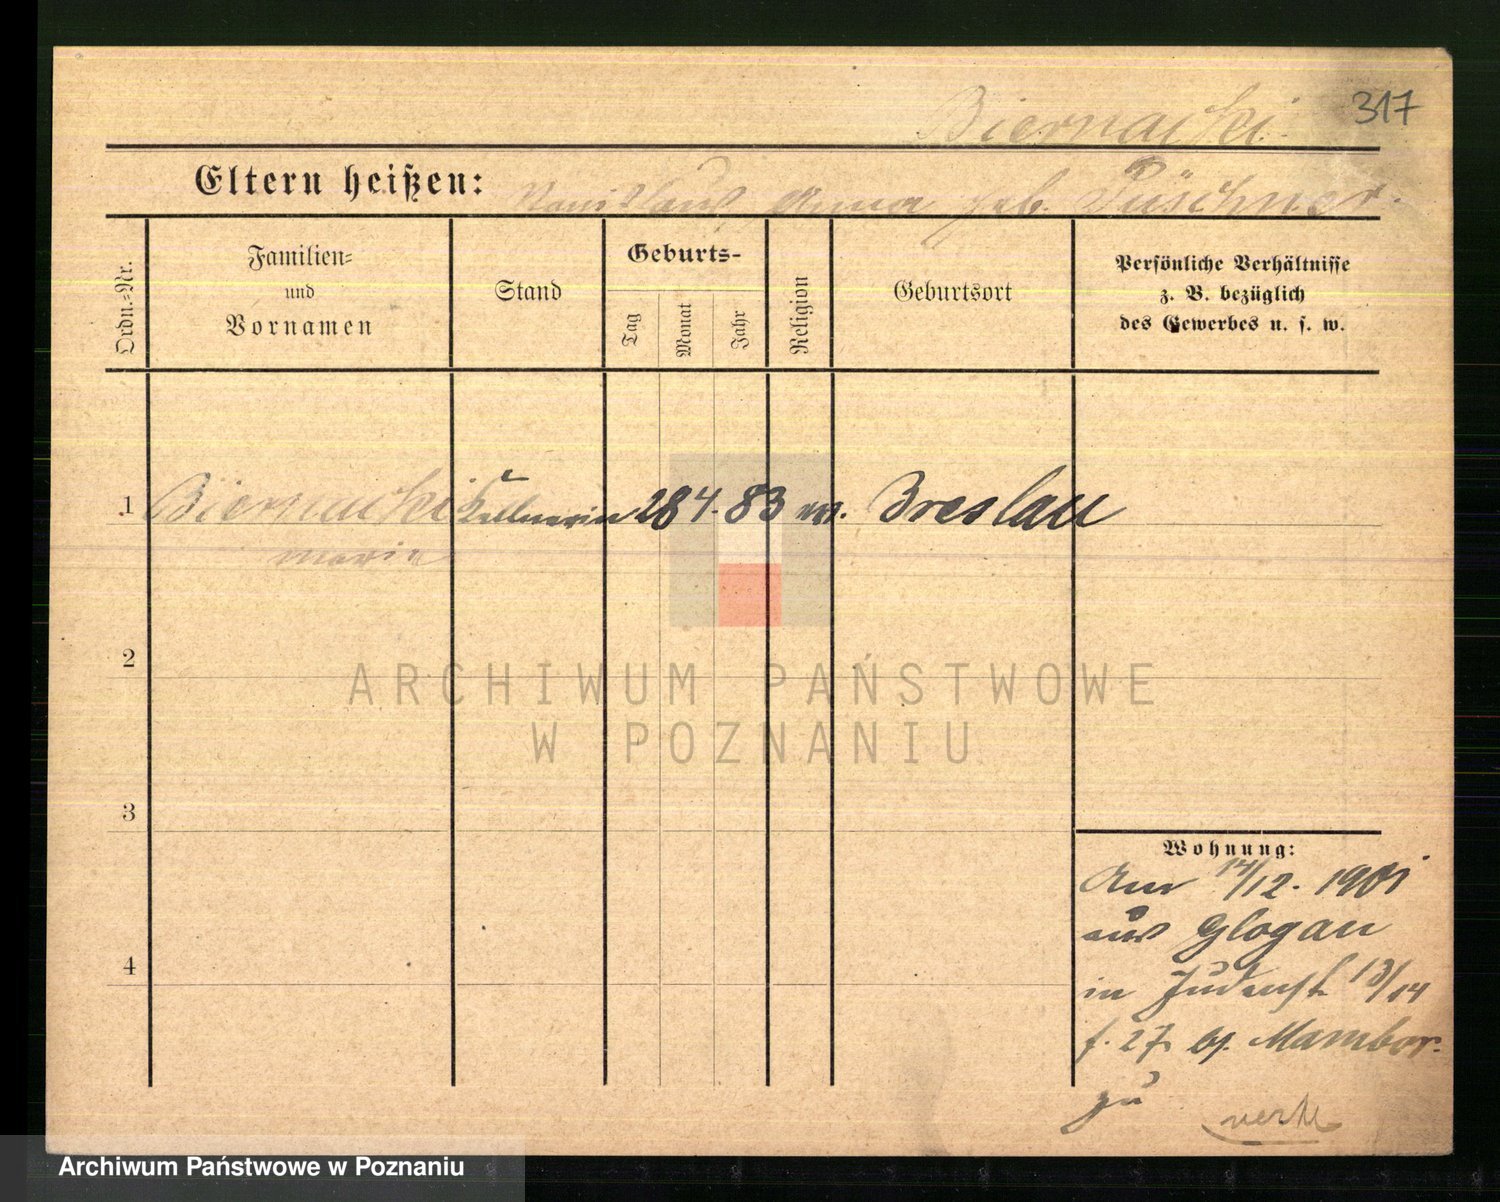 317
Biernacki.
Eltern heißen: Stanislaus, Anna geb. Püschner.
Ordn.-Nr.
Familien-
und
Vornamen
Stand
Geburts-
Tag
Monat
Jahr
Religion
Geburtsort
Persönliche Verhältnisse
z. B. bezüglich
des Gewerbes u. s. w.
1 Biernacki Kellnerin 28 4. 83 Breslau
Marie
2
ARCHIWUM PAŃSTWOWE
W POZNANIU
3
4
Wohnung:
Am 14/12. 1901
aus Glogau
in Judenst. 13/14
f. 27 bj. Mambor.
zu
Archiwum Państwowe w Poznaniu